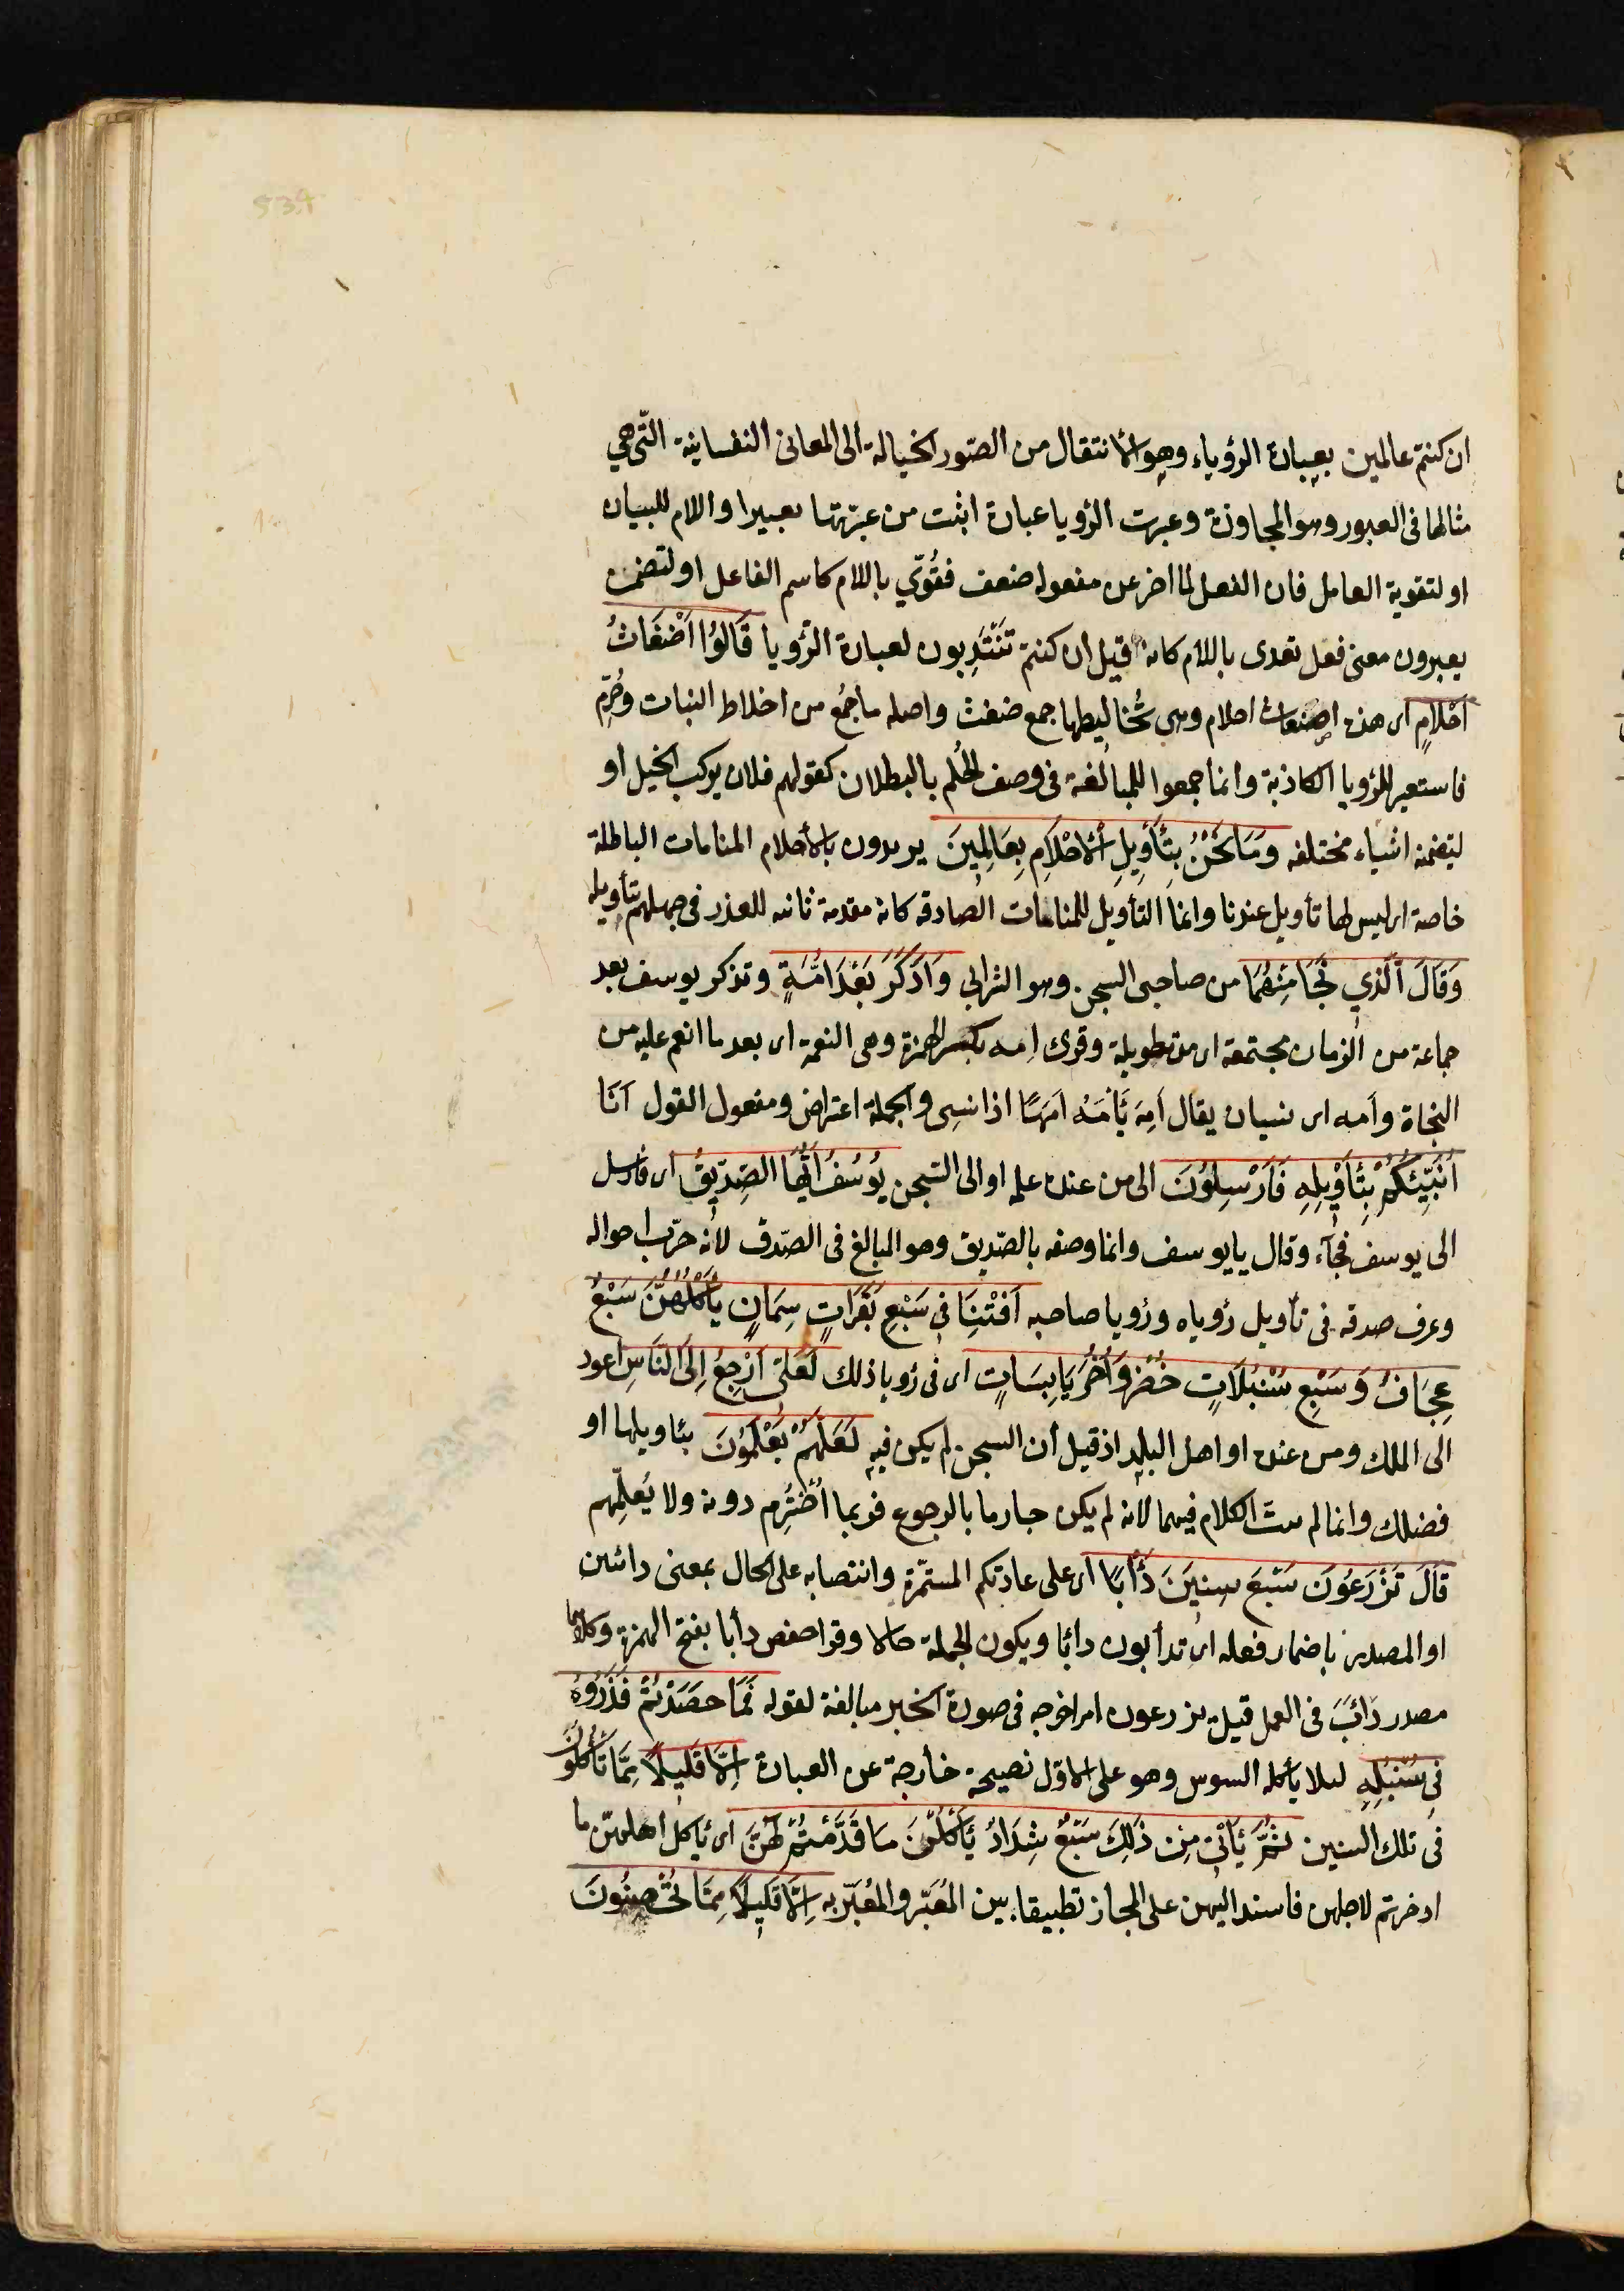 ان كنتم عالمين بعبارة الرؤياء وهو الانتقال من الصّور الخيالة الى المعانى النفسانية التّى هي
مثالها فى العبور وهو المجاوزة وعبرت الرؤيا عبارة اثبت من عبرتها تعبيرا واللام للبيان
او لتقوية العامل فان الفعل لما اخر عن مفعوله ضعف فقُوّي باللام كاسم الفاعل او لتضمن
يعبرون معنى فعل تعدى باللام كانه قيل ان كنتم تَنْتَدِبون لعبارة الرُّويا قَالُوُا اَضْغَاثُ
اَحْلاَمٍ اى هذه اضغاث احلام وهى تخاليطها جمع ضغث واصله ما جُمع من اخلاط النبات وحُزِم
فاستعير للرؤيا الكاذبة وانما جمعوا للمبالغة فى وصف الحُلم بالبطلان كقولهم فلان يركب الخيل او
لتضمنه اشياء مختلفه وَمَا نَحْنُ بِتَأوِيلِ الْاَحْلَامِ بِعَالِمِينَ يريدون بالأحلام المنامات الباطلة
خاصة اى ليس لها تأويل عندنا وانما التأويل للمنامات الصادقه كانه مقدمة ثانيه للعذر فى جهلهم بتأويله
وَقَالَ الَّذِي نَجَا مِنْهُمَا من صاحبى السجن وهو الشرابي وَادَّكَرَ بَعْدَ اُمَّةٍ وتذكر يوسف بعد
جماعة من الزمان مجتمعة اى مدة طويلة وقرى اِمه بكسر الهمزة وهى النعمة اى بعد ما انعم عليه من
النجاة وأمه اى نسيان يقال اَمِهَ يَأمَهُ اَمَهًا اذا نسِى والجملة اعتراض ومفعول القول اَنَا
اُنَبِّئُكُمْ بِتَأوِيلِهِ فَاَرْسِلُونَ الى من عنده علم او الى السّجن يُوسُفُ اَيُّهَا الصِّدِّيقُ اى فارسل
الى يوسف فجآء وقال يا يوسف وانما وصفه بالصّديق وهو المبالغ فى الصّدق لانه جرّب احواله
وعرف صدقه فى تأويل رؤياه ورؤيا صاحبه اَفْتِنَا فِى سَبْعِ بَقَرَاتٍ سِمَانٍ يَأكُلُهُنَّ سَبْعٌ
عِجَافٌ وَسَبْعِ سُنْبُلَاتٍ خُضْرٍ وَاُخَرَ يَابِسَاتٍ اى فى رؤيا ذلك لَعَلّى اَرْجِعُ اِلَى النَّاسِ اعود
الى الملك ومن عنده او اهل البلد اذ قيل ان السجن لم يكن فيه لَعَلَّهُمْ يَعْلَمُونَ بتاويلها او
فضلك وانما لم يبت الكلام فيهما لانه لم يكن جازما بالرجوع فربما اُخْتُرِم دونه ولا يُعلّمهم
قَالَ تَزْرَعُونَ سَبْعَ سِنِينَ دَأَبًا اى على عادتكم المستمّرة وانتصابه على الحال بمعنى دائبين
او المصدر باضمار فعله اى تدأبون دأبا ويكون الجملة حالا وقرا حفص دأبا بفتح الهمزة وكلاهما
مصدر دَأبَ فى العمل قيل تزرعون امر اخرجه فى صورة الخبر مبالغة لقوله فَمَا حَصَدْتُمْ فَذَرُوهُ
فِى سُنْبُلِهِ لئلا يأكله السوس وهو على الاوّل نصيحة خارجة عن العبارة اِلَّا قَلِيلًا مِمَّا تَأكُلُونَ
فى تلك السنين ثُمَّ يَأتِى مِن ذَلِكَ سَبْعٌ شِدَادٌ يَأكُلْنَ مَا قَدَّمْتُمْ لَهُنَّ اى يأكل اهلهنّ ما
ادخرتم لاجلهن فاسند اليهن على المجاز تطبيقا بين المُعَبّر والمُعَبَّر به اِلَّا قَلِيلًا مِمَّا تُحْصِنُونَ